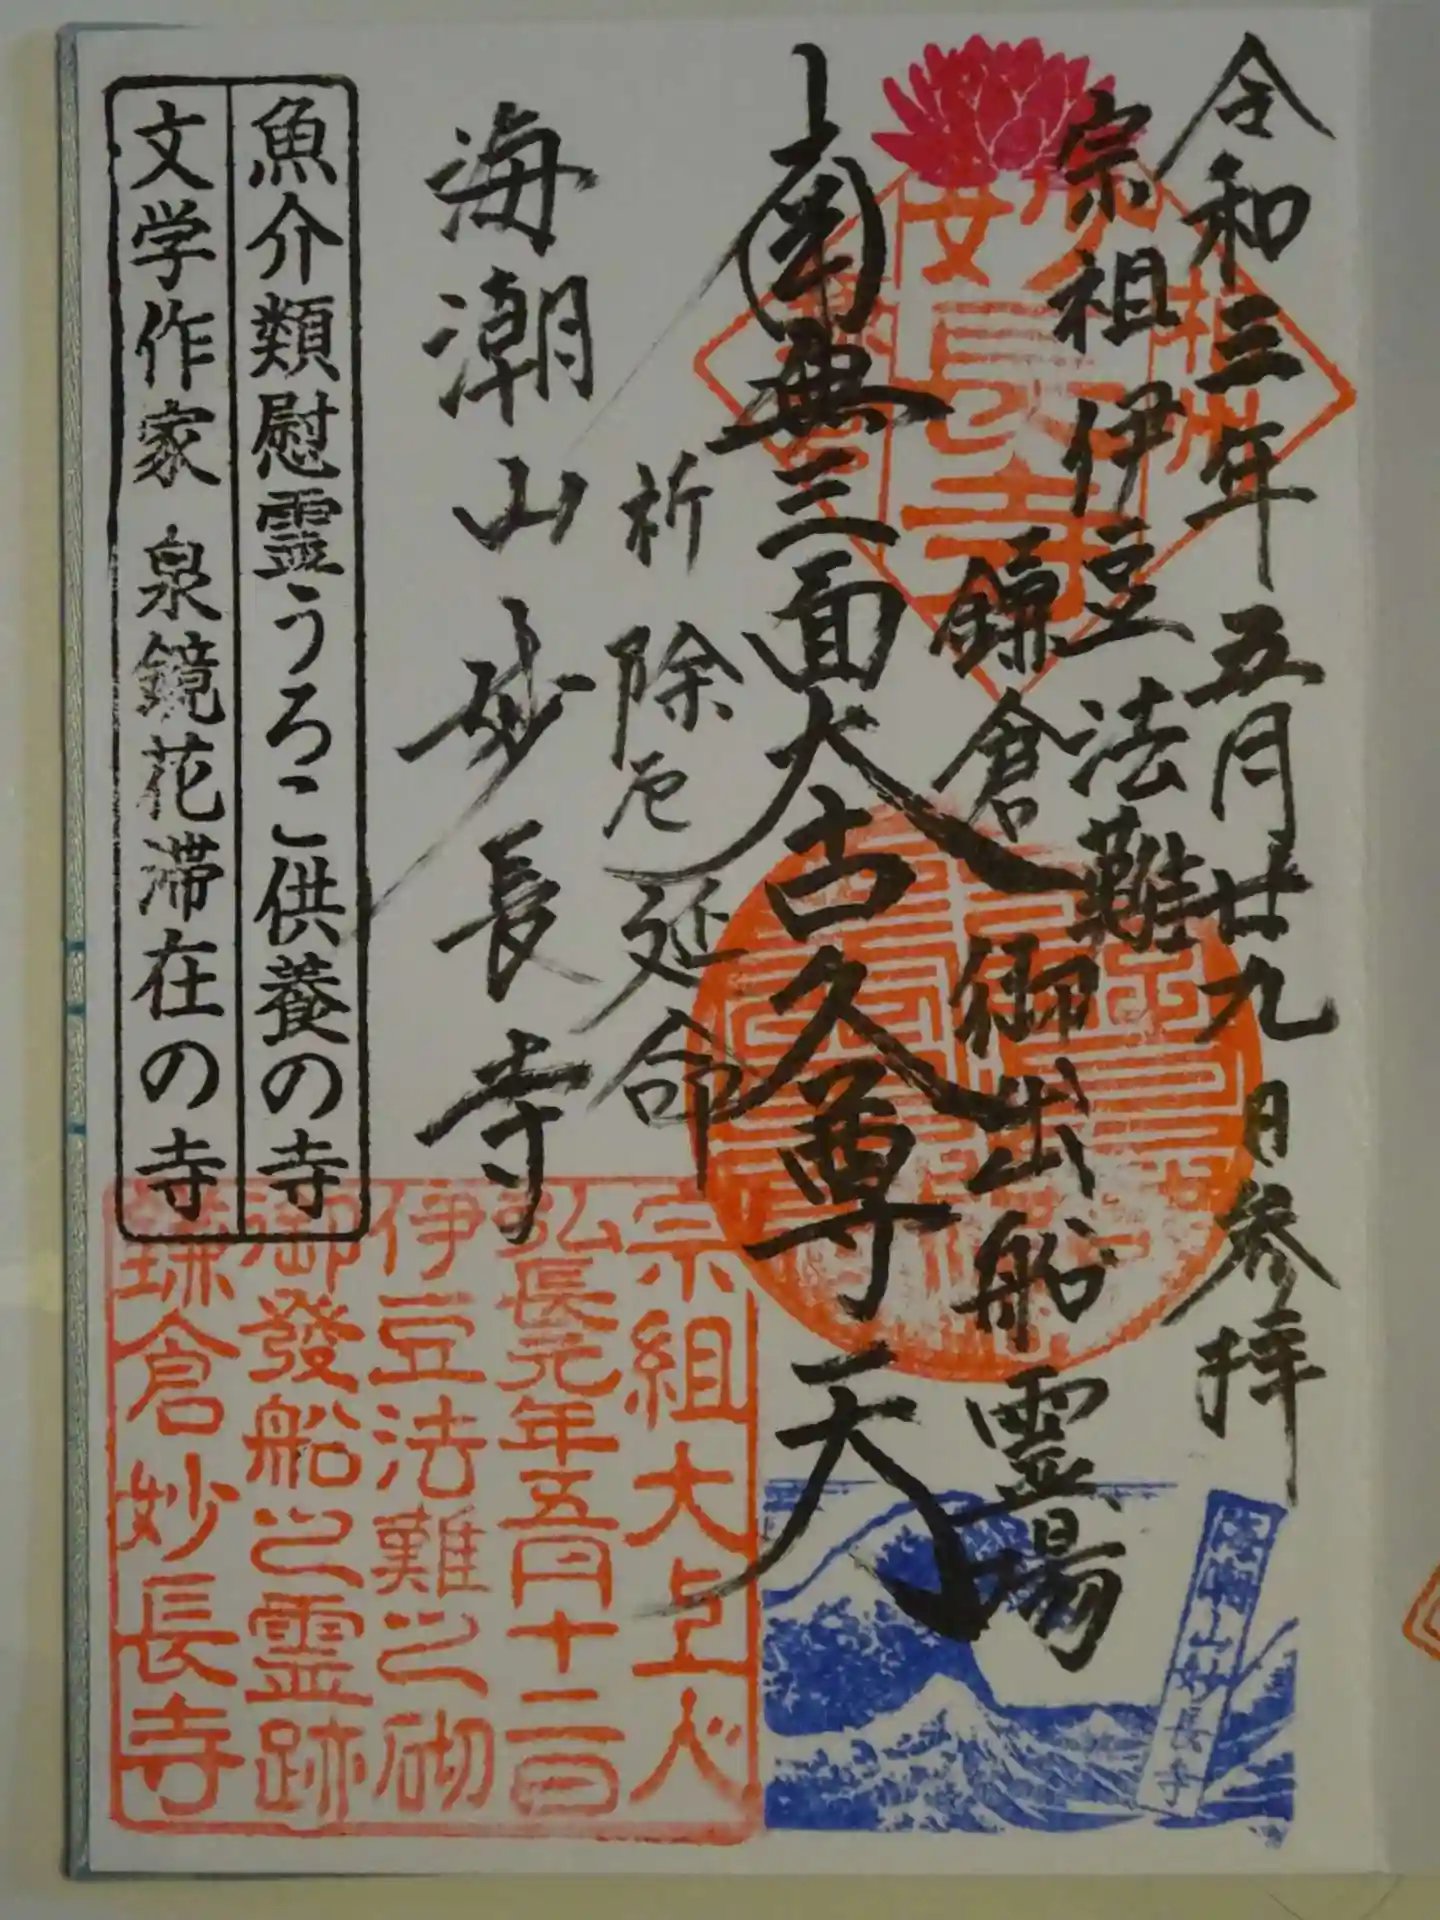 令和三年五月廿九日参拝
宗祖伊豆法難
鎌倉御出船霊場
南無三面大古久尊天
祈除厄延命
海潮山妙長寺
魚介類慰霊うろこ供養の寺
文学作家 泉鏡花滞在の寺
妙長寺
海潮山妙長寺
宗祖大上人
弘長元年五月十二日
伊豆法難之砌
御發船之霊跡
鎌倉妙長寺